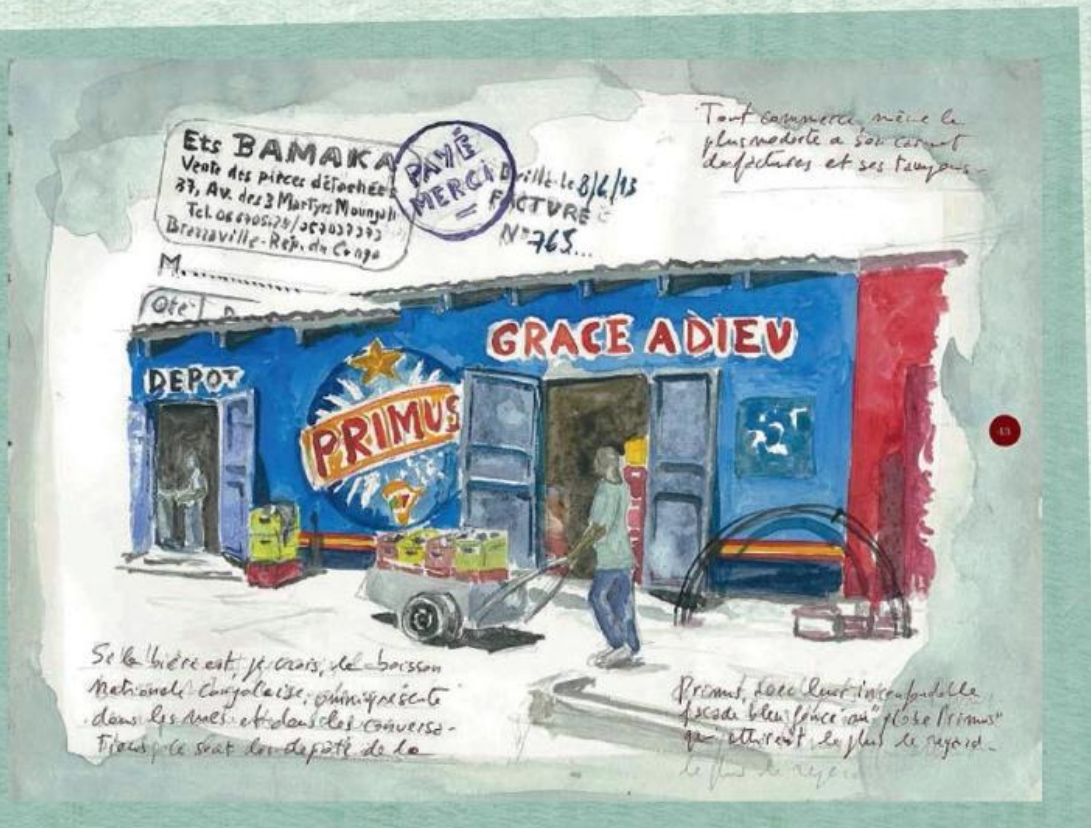 Tout commerce, même le
plus modeste a son carnet
de factures et ses tampons-
Ets BAMAKA
Vente des pièces détachées
37, Av. des 3 Martyrs Moungali
Tel.
Brazzaville-Rép. du Congo
PAYÉ
MERCI
B.ville-le 8/6/13
FACTURE
N° 765...
M..............
DEPOT
PRIMUS
GRACE ADIEU
43
Si la bière est, je crois, la boisson
nationale congolaise, omniprésente
dans les rues et dans les conversa-
tions, ce sont les dépôts de la
Primus, avec leur
façade bleu foncé au "globe Primus"
qui attirent le plus le regard-
le plus le regard